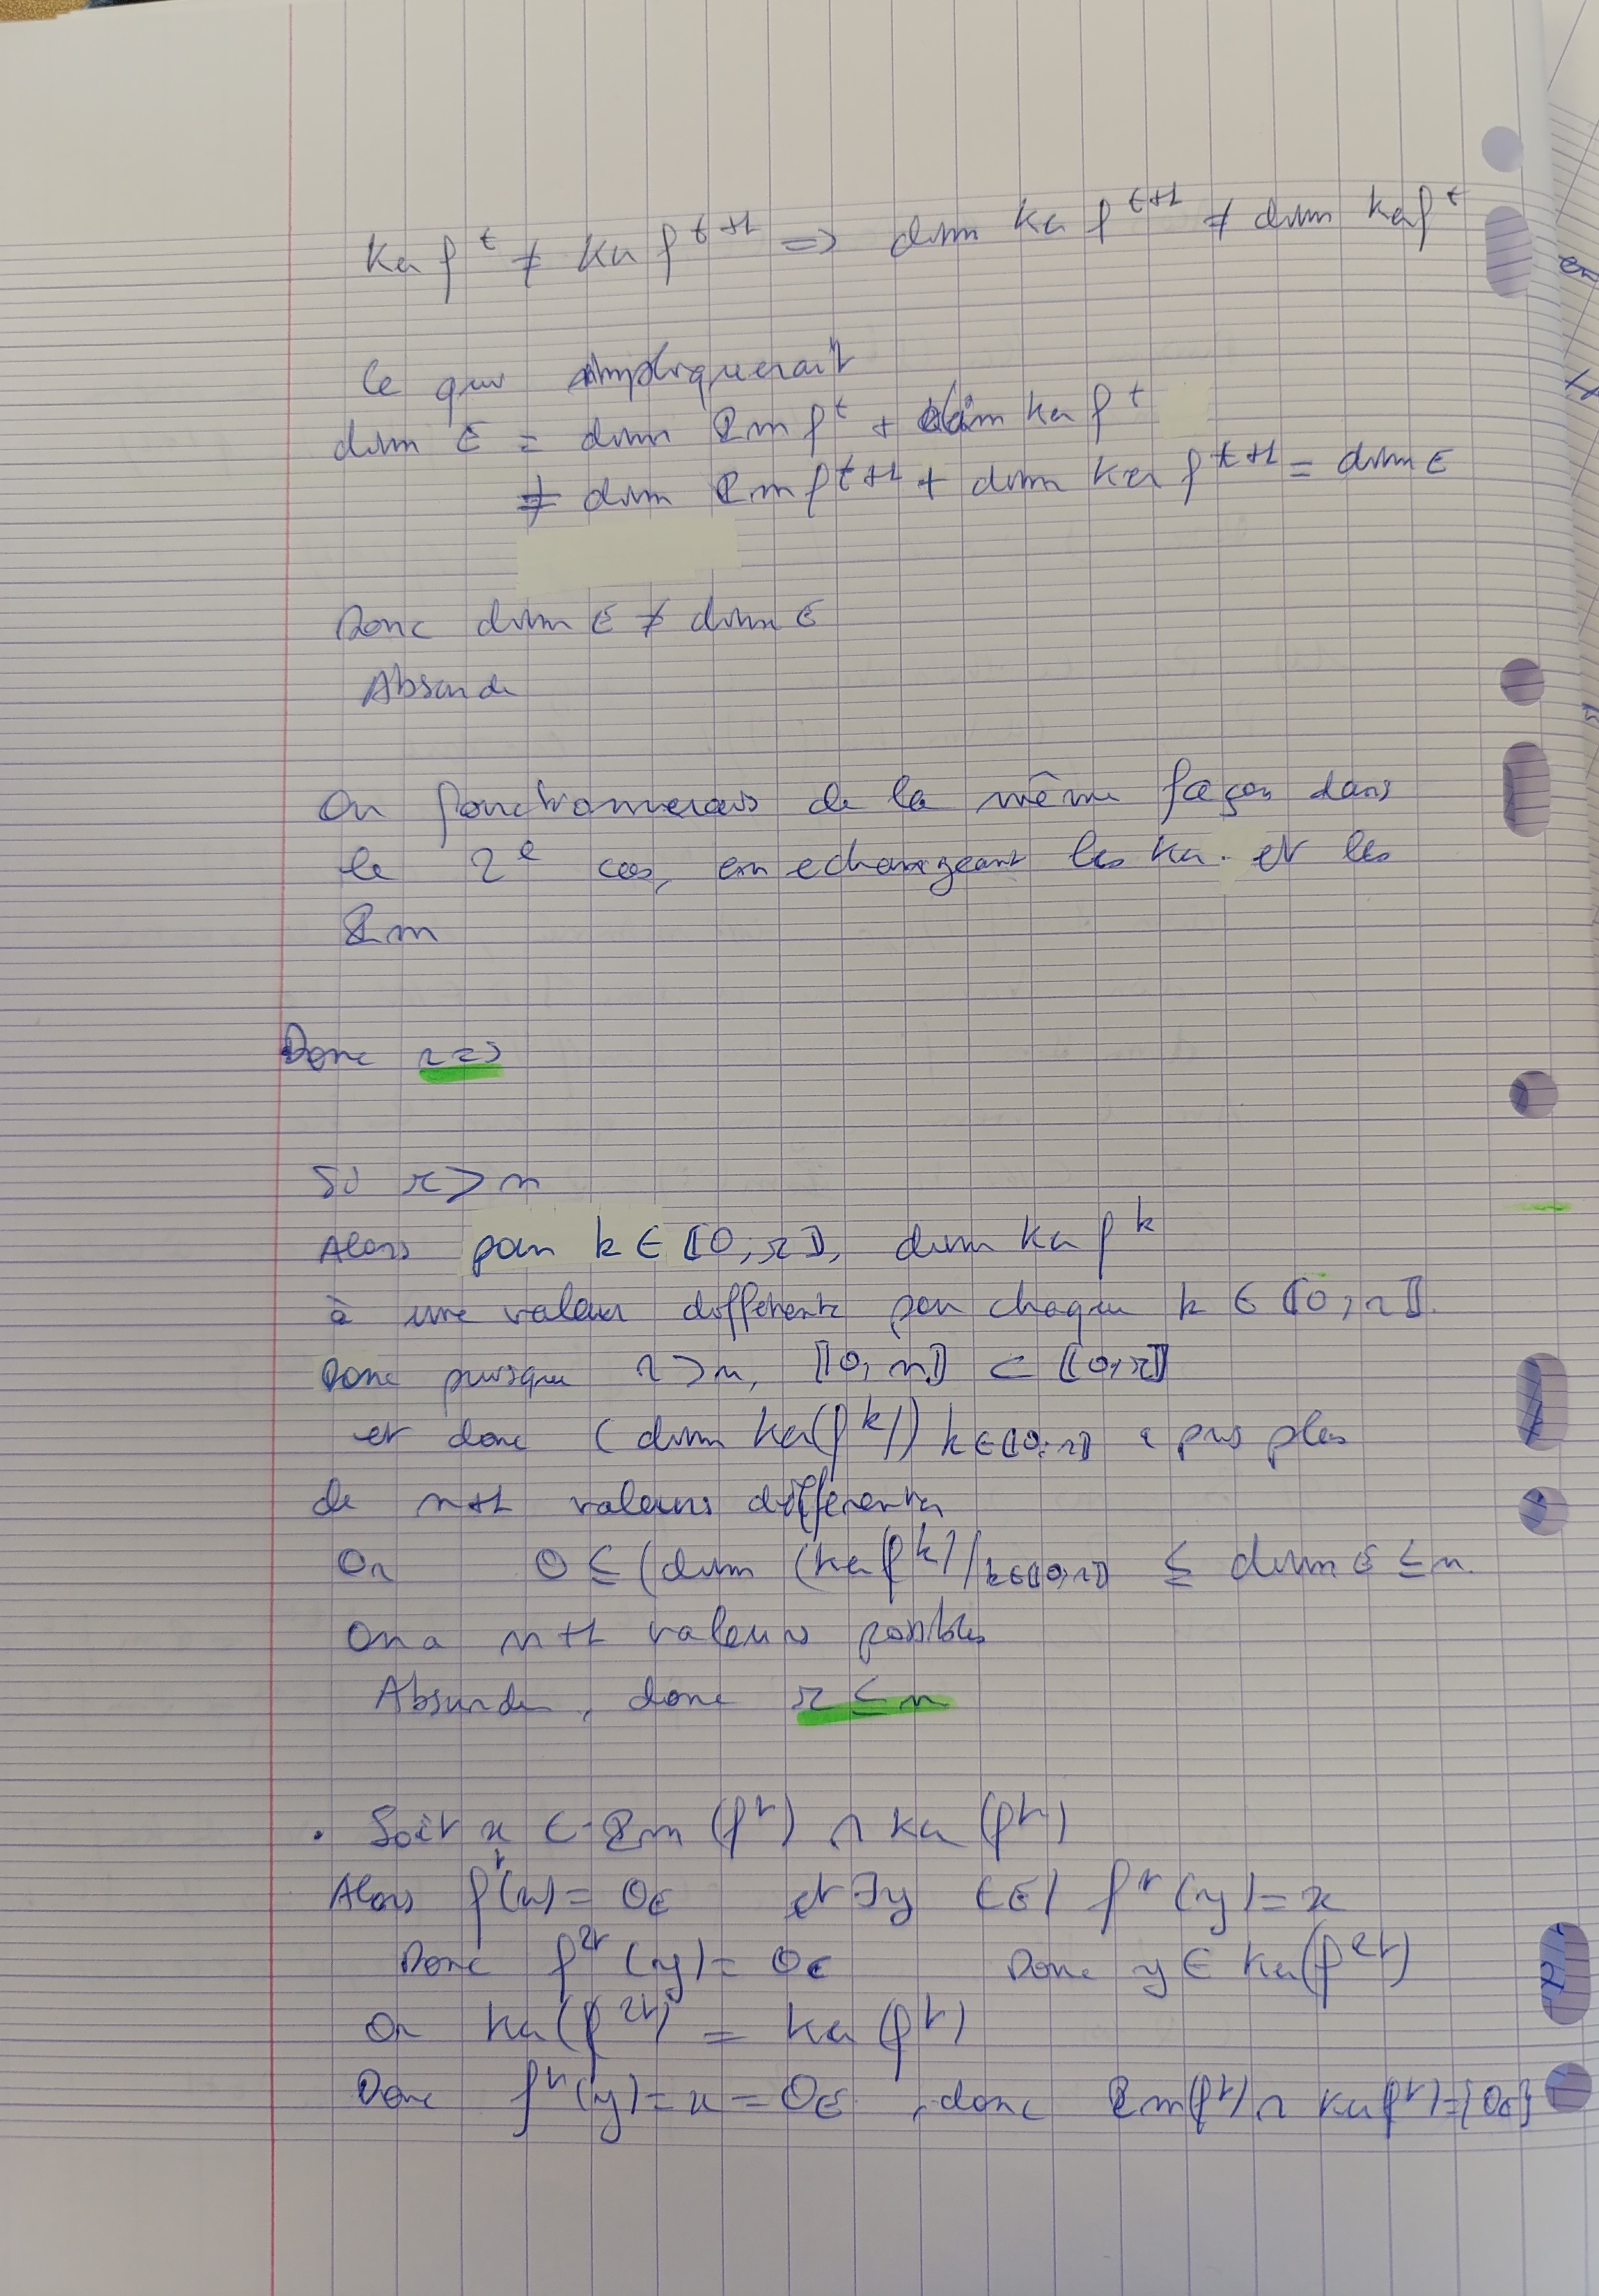 Ker f^t ≠ Ker f^{t+1} => dim Ker f^{t+1} ≠ dim Ker f^t
Ce qui impliquerait
dim E = dim Im f^t + dim Ker f^t
≠ dim Im f^{t+1} + dim Ker f^{t+1} = dim E
Donc dim E ≠ dim E
Absurde
On fonctionnerais de la même façon dans
le 2e cas, en echangeant les Ker et les
Im
Donc r = s
Si r > n
Alors pour k ∈ ⟦0; r⟧, dim Ker f^k
à une valeur différente pour chaque k ∈ ⟦0; r⟧.
Donc puisque r > n, ⟦0, n⟧ ⊂ ⟦0, r⟧
et donc (dim Ker(f^k))_{k∈⟦0;r⟧} plus
de n+1 valeurs différentes
Or 0 ≤ (dim (Ker f^k))_{k∈⟦0,r⟧} ≤ dim E ≤ n.
On a n+1 valeurs possibles
Absurde, donc r ≤ n
. Soit x ∈ Im (f^r) ∩ Ker (f^r)
Alors f^r(x) = 0_E et ∃y ∈ E / f^r (y) = x
Donc f^{2r} (y) = 0_E Donc y ∈ Ker(f^{2r})
Or Ker(f^{2r}) = Ker (f^r)
Donc f^r (y) = x = 0_E, donc Im(f^r) ∩ Ker f^r) = {0_E}